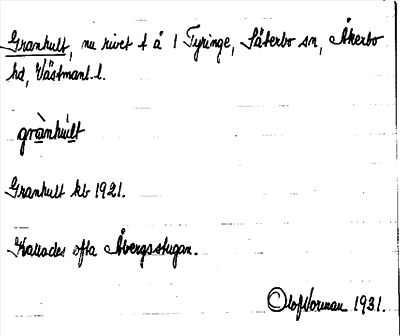 Granhult, nu rivet t å 1 Tyringe, Säterbo sn, Åkerbo
hd, Västmanl. l.
grànhúlt
Granhult kb 1921.
Kallades ofta Åbergsstugan.
Olof Norman 1931.